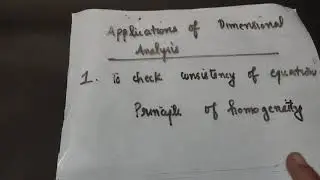 Applications of Dimensional
Analysis
1. To check consistency of equations
Principle of homogeneity